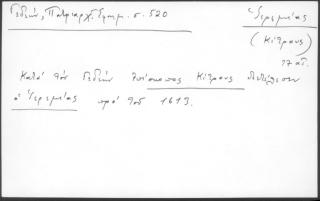 Γεδεών, Πατριαρχ. Σημ. σ. 520
Ἱερεμίας
(Κίτρους)
17 αι.
Κατά τόν Γεδεών ἐπίσκοπος Κίτρους
ὁ Ἱερεμίας πρό τοῦ 1613.